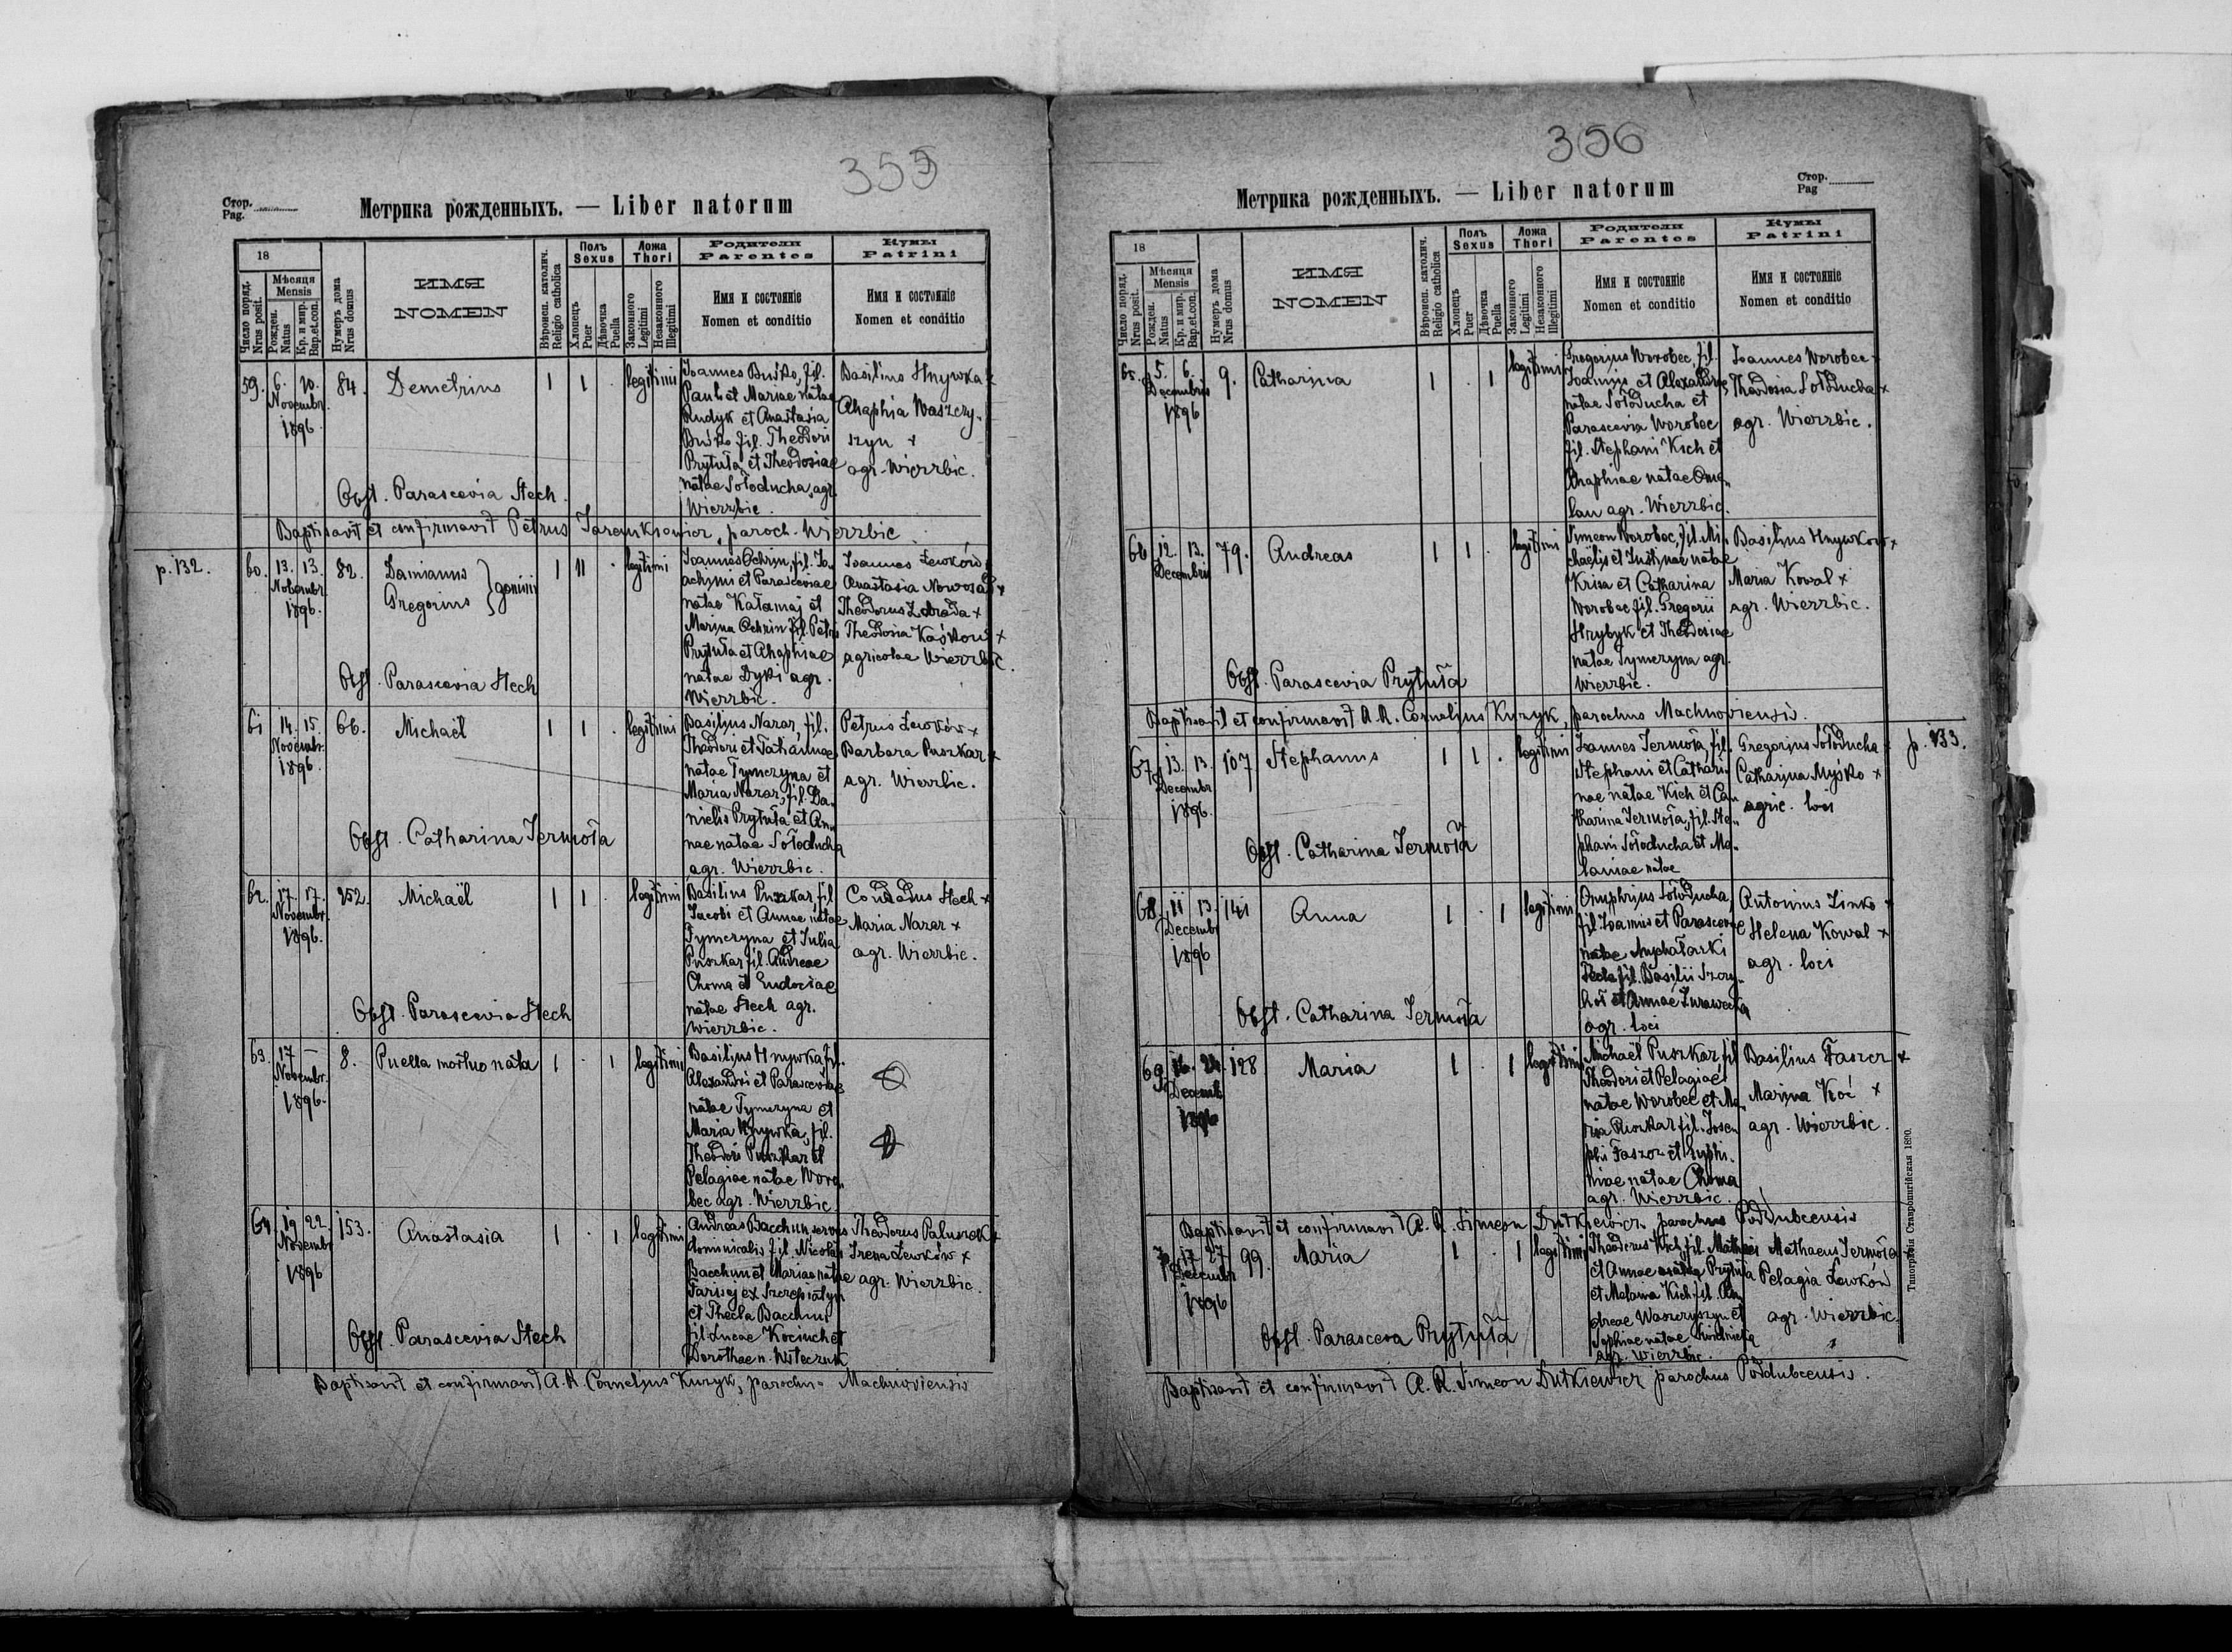 355
Стор.
Pag.
Метрика рожденныхъ. — Liber natorum
18
Число поряд.
Nrus posit.
Мѣсяця
Mensis
Рожден.
Natus
Кр. и мир.
Bap.et.con.
Нумеръ дома
Nrus domus
ИМЯ
NOMEN
Вѣроисп. католич.
Religio catholica
Полъ
Sexus
Хлопецъ
Puer
Дѣвочка
Puella
Ложа
Thori
Законного
Legitimi
Незаконного
Illegitimi
Родители
Parentes
Имя и состоянiе
Nomen et conditio
Кумы
Patrini
Имя и состоянiе
Nomen et conditio
59. 6. 10. Novembr. 1896. 84. Demetrius 1 1 . legitimi
Joannes Buśko, fil.
Pauli et Mariae natae
Rudyk et Anastasia
Buśko fil. Theodori
Prytuła et Theodosiae
natae Sołoducha, agr.
Wierzbic.
Basilius Hnywka x
Ahaphia Waszczy-
szyn x
agr. Wierzbic.
Obst. Parascevia Stech.
Baptisavit et confirmavit Petrus paroch. Wierzbic.
p. 132.
60. 13. 13. Novembr. 1896. 82. Damianus
Gregorius } gemini 1 11 . legitimi
Joannes Ochrin, fil. Jo-
achimi et Parasceviae
natae Kałamaj et
Maryna Ochrin fil. Petri
Prytuła et Ahaphiae
natae Dyki agr.
Wierzbic.
Joannes Lewków
Anastasia Nowosad x
Theodorus x
Theodosia Kaśków x
agricolae Wierzbic.
Obst. Parascevia Stech
61 14. 15. Novembr. 1896. 66. Michaël 1 1 . legitimi
Basilius Nazar, fil.
Theodori et Tatiannae
natae Tymczyna et
Maria Nazar, fil. Da-
nielis Prytuła et An-
nae natae Sołoducha
agr. Wierzbic.
Petrus Lewków x
Barbara Puszkar x
agr. Wierzbic.
Obst. Catharina Jermoła
62. 17. 17. Novembr. 1896. 252. Michaël 1 1 . legitimi
Basilius Puszkar, fil.
Jacobi et Annae natae
Tymczyna et Julia
Puszkar fil. Andreae
Choma et Eudociae
natae Stech agr.
Wierzbic.
Conradus Stech x
Maria Nazar x
agr. Wierzbic.
Obst. Parascevia Stech
63. 17 — Novembr. 1896. 8. Puella mortuo nata 1 . 1 legitimi
Basilius Hnywka fil.
Alexandri et Parasceviae
natae Tymczyna et
Maria Hnywka, fil.
Theodori Puszkar et
Pelagiae natae Woro-
bec agr. Wierzbic.
64. 19 22. Novembr. 1896 153. Anastasia 1 . 1 legitimi
Andreas Bacchun servus
dominicalis fil. Nicolai
Bacchun et Mariae natae
ex Szczepiatyn
et Thecla Bacchun
fil. Lucae Kociuch et
Dorothae n.
Theodorus x
Irena Lewków x
agr. Wierzbic.
Obst. Parascevia Stech
Baptisavit et confirmavit A. R. Cornelius Kuzyk, parochus Machnoviensis
356
Стор.
Pag
Метрика рожденныхъ. — Liber natorum
18
Число поряд.
Nrus posit.
Мѣсяця
Mensis
Рожден.
Natus
Кр. и мир.
Bap.et.con.
Нумеръ дома
Nrus domus
ИМЯ
NOMEN
Вѣроисп. католич.
Religio catholica
Полъ
Sexus
Хлопецъ
Puer
Дѣвочка
Puella
Ложа
Thori
Законного
Legitimi
Незаконного
Illegitimi
Родители
Parentes
Имя и состоянiе
Nomen et conditio
Кумы
Patrini
Имя и состоянiе
Nomen et conditio
65. 5. 6. Decembris 1896 9. Catharina 1 . 1 legitimi
Gregorius Worobec, fil.
Joannis et Alexandrae
natae Sołoducha et
Parascevia Worobec
fil. Stephani Kich et
Ahaphiae natae Ome-
lan agr. Wierzbic.
Joannes Worobec x
Theodosia Sołoducha x
agr. Wierzbic.
66 12. 13. Decembris 1896 79. Andreas 1 1 . legitimi
Simeon Worobec, fil. Mi-
chaëlis et Justinae natae
Krisa et Catharina
Worobec fil. Gregorii
Hrybyk et Theodosiae
natae Tymczyna agr.
Wierzbic.
Basilius Hnywkow x
Maria Kowal x
agr. Wierzbic.
Obst. Parascevia Prytuła
Baptisavit et confirmavit A. R. Cornelius Kuzyk, parochus Machnoviensis.
p. 133.
67 13. 13. Decembr. 1896. 107 Stephanus 1 1 . legitimi
Joannes Jermoła, fil.
Stephani et Cathari-
nae natae Kich et Ca-
tharina Jermoła, fil. Ste-
phani Sołoducha et Me-
laniae natae
Gregorius Sołoducha x
Catharina Myśko x
agric. loci
Obst. Catharina Jermoła
68. 11 13. Decembr 1896 141 Anna 1 . 1 legitimi
Onuphrius Sołoducha
fil. Joannis et Parasceviae
natae
Thecla fil. Basilii
et Annae Żurawecka
agr. loci
Antonius Zinko x
Helena Kowal x
agr. loci
Obst. Catharina Jermoła
69. 16. 24. Decembr 1896 128 Maria 1 . 1 legitimi
Michaël Puszkar, fil
Theodori et Pelagiae
natae Worobec et Ma-
ria Puszkar fil. Jose-
phi Faszcz et Euphi-
miae natae Choma
agr. Wierzbic.
Basilius Faszcz x
Maryna Koć x
agr. Wierzbic.
Baptisavit et confirmavit A. R. Simeon Dutkiewicz, parochus Poddubcensis
70 17 27 Decembr 1896 99. Maria 1 . 1 legitimi
Theodorus Kich, fil. Mathaei
et Annae natae Prytuła
et Melania Kich fil. An-
dreae Waszczyszyn et
Sophiae natae
agr. Wierzbic.
Mathaeus Jermoła x
Pelagia Lewków
agr. Wierzbic.
Obst. Parasceva Prytuła
Baptisavit et confirmavit A. R. Simeon Dutkiewicz parochus Poddubcensis.
Типографія Ставропигійская 1890.